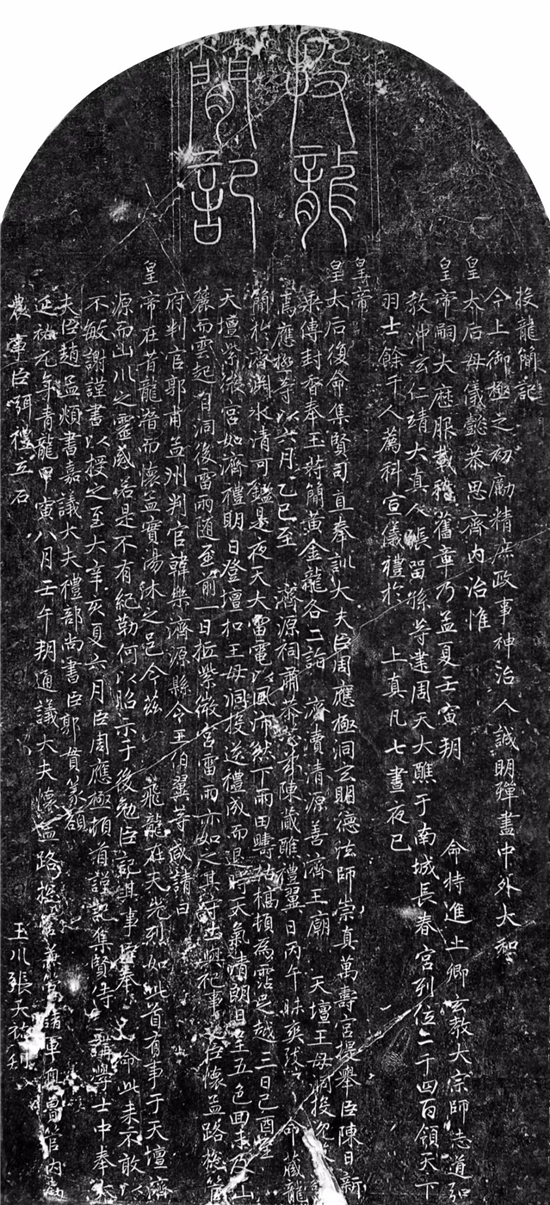 投龍
簡記
投龍簡記
今上御極之初勵精庶政事神治人誠明殫盡中外大和
皇太后母儀懿恭思齊內治惟
皇帝嗣大歷服載稽舊章乃孟夏壬寅朔 命特進上卿玄教大宗師志道弘
教沖玄仁靖大真人張留孫等建周天大醮于南城長春宮列位二千四百領天下
羽士餘千人薦科宣儀禮於 上真凡七晝夜已
皇帝
皇太后復命集賢司直奉訓大夫臣周應極洞玄明德法師崇真萬壽宮提舉臣陳日新
乘傳封香奉玉符簡黃金龍各二詣 濟瀆清源善濟王廟 天壇王母洞投
應極等以六月乙巳至 濟源祠肅恭 陳藏醮禮翼日丙午昧爽 命藏龍
簡於濟淵水清可鑑是夜天大雷電以風沛然下雨田疇枯槁頓為霑足越三日己酉登
天壇紫微宮如濟禮明日登壇扣王母洞投送禮成而退時天氣清朗日呈五色回未及山
麓而雲起自洞後雷雨隨至前一日抵紫微宮雷雨亦如之其守土與祀事者懷孟路總管
府判官郭甫孟州判官韓樂濟源縣令王伯翼等咸請曰
皇帝在昔龍潛而懷孟實湯沐之邑今茲 飛龍在天光烈如此首有事于天壇濟
源而山川之靈感若是不有紀勒何以昭示于後勉臣記其事臣奉 命此來不敢以
不敏謝謹書以授之至大辛亥夏六月臣周應極頓首謹記集賢侍講學士中奉大
夫臣趙孟頫書嘉議大夫禮部尚書臣郭貫篆額
延祐元年青龍甲寅八月壬午朔通議大夫懷孟路總管兼管諸軍奧魯管內勸
農事臣珥禮立石 玉川張天祐刊